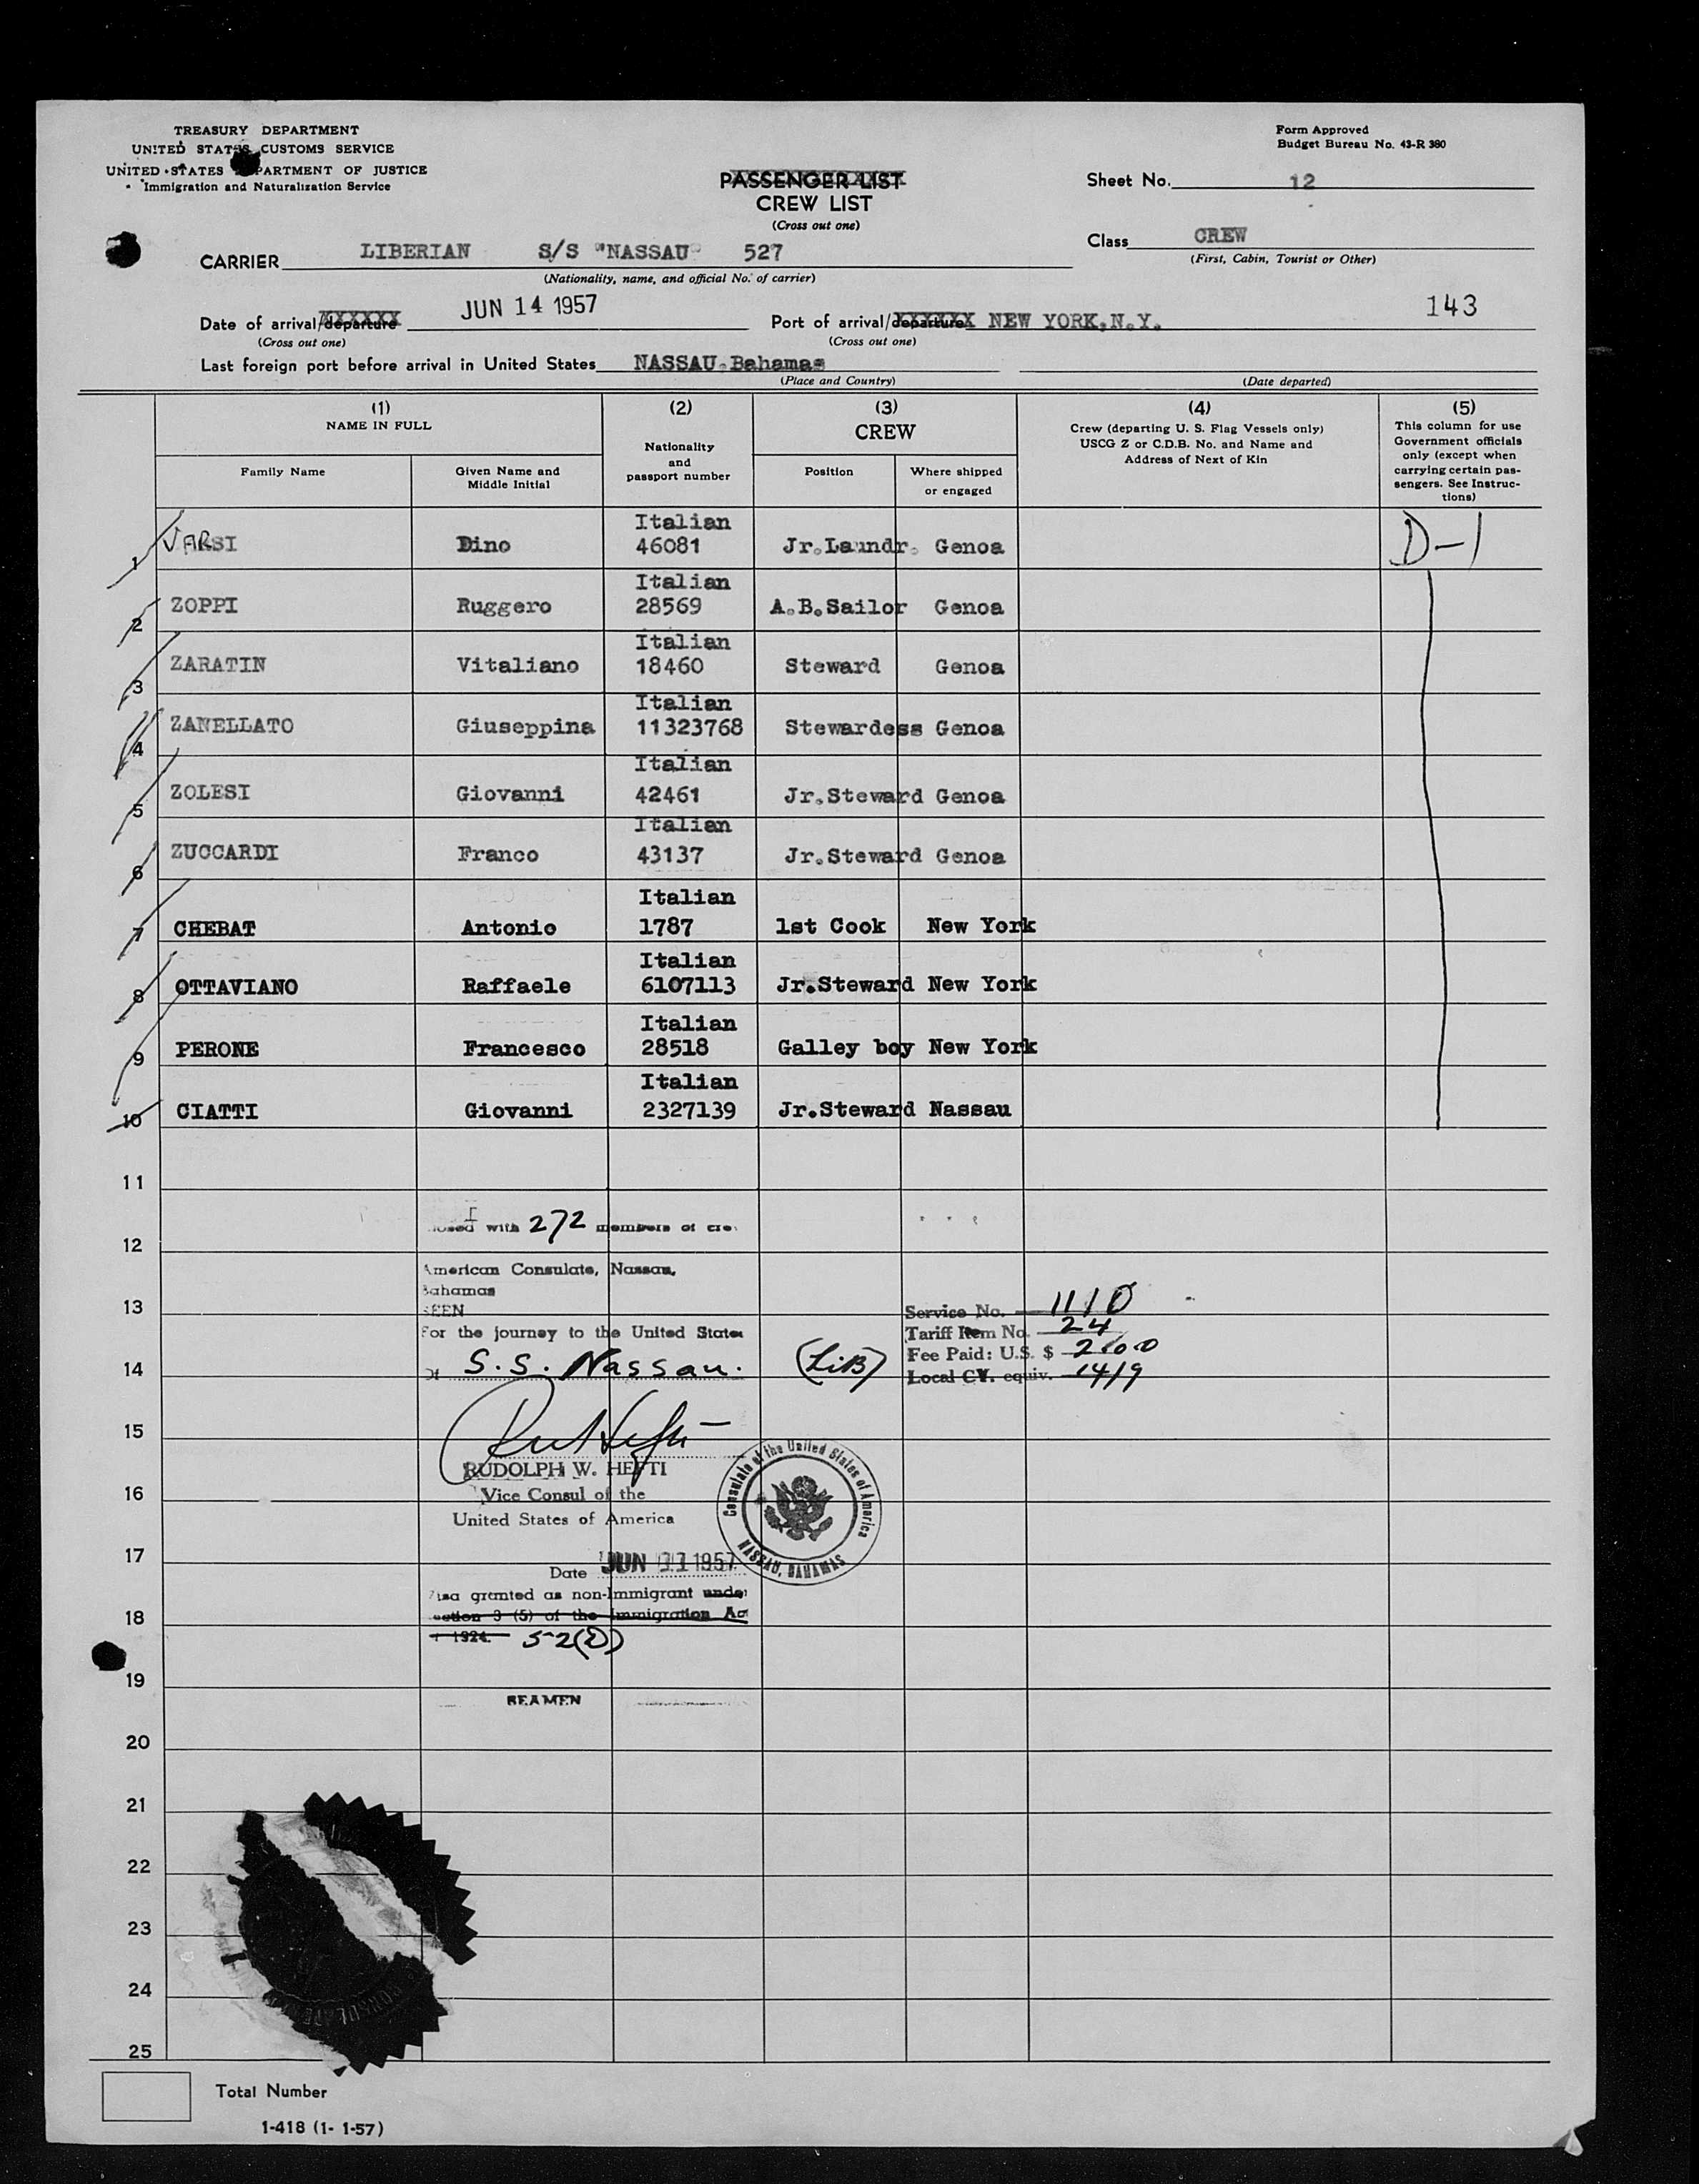 TREASURY DEPARTMENT
UNITED STATES CUSTOMS SERVICE
UNITED STATES DEPARTMENT OF JUSTICE
Immigration and Naturalization Service
Form Approved
Budget Bureau No. 43-R 380
PASSENGER LIST
CREW LIST
(Cross out one)
Sheet No. 12
Class CREW
(First, Cabin, Tourist or Other)
CARRIER LIBERIAN S/S "NASSAU" 527
(Nationality, name, and official No. of carrier)
143
Date of arrival/departure JUN 14 1957
(Cross out one)
Port of arrival/departure NEW YORK,N.Y.
(Cross out one)
Last foreign port before arrival in United States NASSAU-Bahamas
(Place and Country)
(Date departed)
(1) (2) (3) (4) (5)
NAME IN FULL
Family Name
Given Name and
Middle Initial
Nationality
and
passport number
CREW
Position
Where shipped
or engaged
Crew (departing U. S. Flag Vessels only)
USCG Z or C.D.B. No. and Name and
Address of Next of Kin
This column for use
Government officials
only (except when
carrying certain pas-
sengers. See Instruc-
tions)
Italian
1 VARSI Dino 46081 Jr.Laundr. Genoa D-1
Italian
2 ZOPPI Ruggero 28569 A.B.Sailor Genoa
Italian
3 ZARATIN Vitaliano 18460 Steward Genoa
Italian
4 ZANELLATO Giuseppina 11323768 Stewardess Genoa
Italian
5 ZOLESI Giovanni 42461 Jr.Steward Genoa
Italian
6 ZUCCARDI Franco 43137 Jr.Steward Genoa
Italian
7 CHEBAT Antonio 1787 1st Cook New York
Italian
8 OTTAVIANO Raffaele 6107113 Jr.Steward New York
Italian
9 PERONE Francesco 28518 Galley boy New York
Italian
10 CIATTI Giovanni 2327139 Jr.Steward Nassau
11
with 272 members of
12
American Consulate, Nassau,
Bahamas
13
SEEN
For the journey to the United States
14
Of S.S. Nassau. (LIB)
Service No. 1110
Tariff Item No. 24
Fee Paid: U.S. $
Local CY. equiv. 14/9
15
RUDOLPH W. HEFTI
16
Vice Consul of the
United States of America
Consulate of the United States of America
NASSAU, BAHAMAS
17
Date JUN 11 1957
Visa granted as non-Immigrant under
18
section 3 (5) of the Immigration Act
1924. 5-2(D)
19
SEAMEN
20
21
22
23
24
25
Total Number
1-418 (1- 1-57)